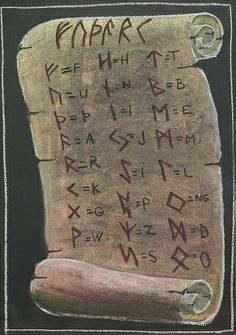 ᚠᚢᚦᚨᚱᚲ
ᚠ=F ᚺ=H ᛏ=T
ᚢ=U ᚾ=N ᛒ=B
ᚦ=Þ ᛁ=I ᛖ=E
ᚨ=A ᛃ=J ᛗ=M
ᚱ=R ᛇ=i ᛚ=L
ᚲ=K ᛈ=P ᛜ=NG
ᚷ=G ᛉ=Z ᛞ=D
ᚹ=W ᛊ=S ᛟ=O